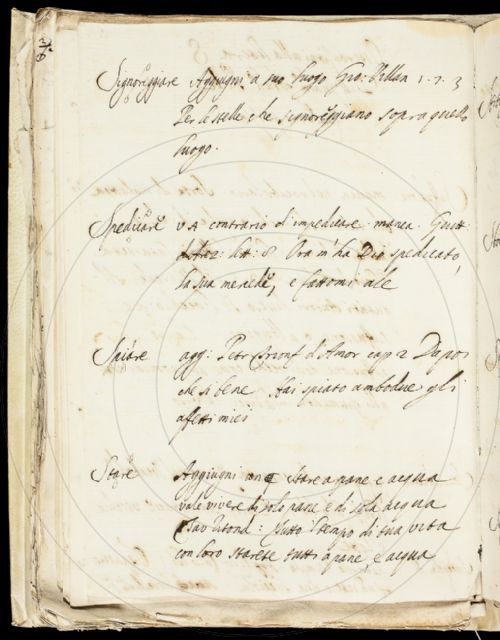 Signoreggiare Aggiugni a suo luogo Gio: Villan 1. 7. 3
Per le stelle che signoreggiano sopra quello
luogo.
Spedicare V A contrario di impedicare manca. Guitt.
lett: 8 Ora m'ha Dio spedicato,
la sua mercede, e fattomi ale
Spiare agg: Petr Trionf d'Amor cap 2 Da poi
che sì bene Hai spiato ambodue gli
affetti miei
Stare Aggiugni Stare a pane e acqua
vale vivere di solo pane e di sola acqua
Tutto 'l tempo di tua vita
con loro starete tutti a pane, e acqua